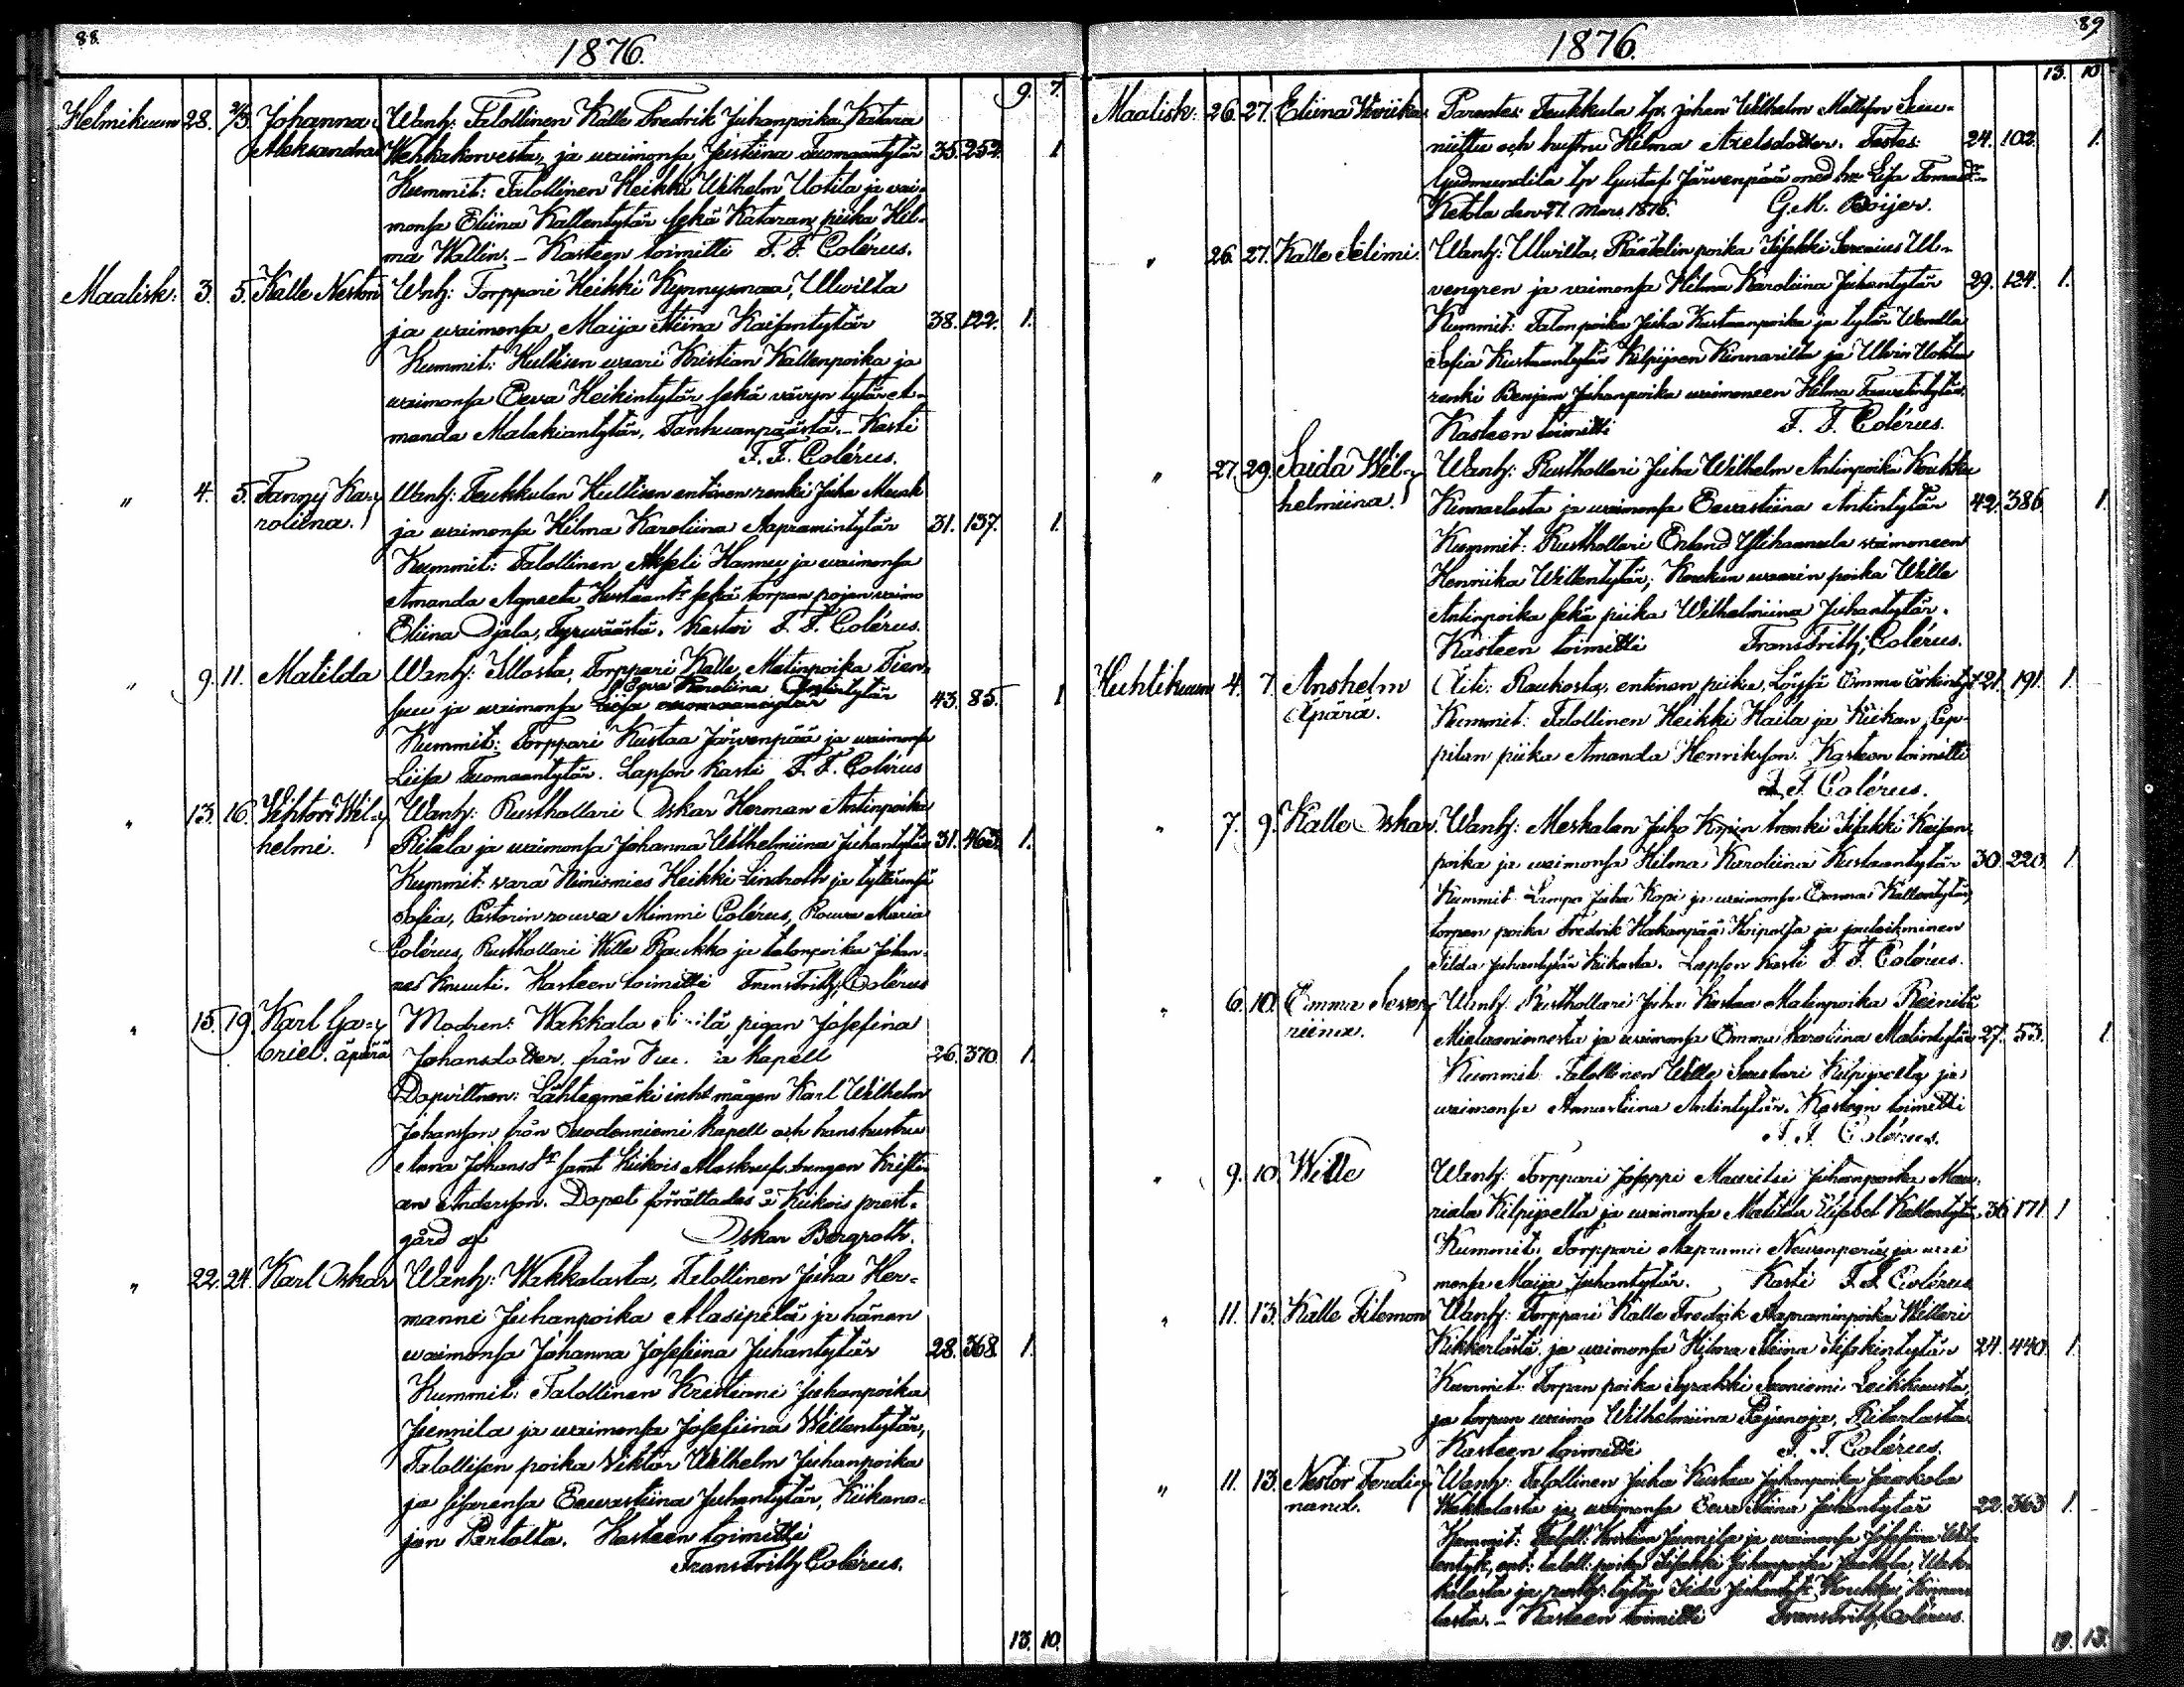 88.
1876.
9. 7.
Helmikuun 28. 2/3. Johanna Wanh: Talollinen Kalle Fredrik Juhanpoika Katara
Aleksandra Wehkakorvesta, ja waimonsa Justiina Tuomaantytär 35. 252. 1
Kummit: Talollinen Heikki Wilhelm Uotila ja wai-
monsa Eliina Kallentytär sekä Kataran piika Hil-
ma Wallin. – Kasteen toimitti F. F. Colérus.
Maalisk: 3. 5. Kalle Nestori Wnh: Torppari Heikki Kynnysmaa, Ulwilta
ja waimonsa Maija Stiina Kaisantytär 38. 122. 1.
Kummit: Hultisen waari Kristian Kallenpoika ja
waimonsa Eeva Heikintytär sekä vävyn tytär A-
manda Malakiantytär, Tanhuanpäästä. – Kasti
F. F. Colérus.
" 4. 5. Fanny Ka- Wanh: Teukkulan Hultisen entinen renki Juha
roliina. ja waimonsa Hilma Karoliina Aapramintytär 31. 137. 1.
Kummit: Talollinen Akseli Hannu ja waimonsa
Amanda Agneeta Kustaant: sekä torpan pojan waimo
Eliina Ojala, Tyrwäästä. Kastoi F. F. Colérus.
" 9. 11. Matilda Wanh: Illosta, Torppari Kalle Matinpoika Tien-
Eeva Karoliina Antintytär
suu ja waimonsa 43. 85. 1
Kummit: Torppari Kustaa Järwenpää ja waimonsa
Liisa Tuomaantytär. Lapsen kasti F. F. Colérus
" 13. 16. Vihtori Wil- Wanh: Rusthollari Oskar Herman Antinpoika
helmi. Ritala ja waimonsa Johanna Wilhelmiina Juhantytär 31. 463. 1.
Kummit: wara Nimismies Heikki Lindroth ja tyttärensä
Sofia, Pastorin rouwa Mimmi Colérus, Rouwa Maria
Colérus, Rusthollari Wille Raukko ja talonpoika Johan-
nes Knuuti. Kasteen toimitti Frans Frith: Colérus
" 15. 19. Karl Ga- Modren: Wakkala pigan Josefina
briel. äpärä Johansdotter från kapell 26. 370. 1.
Dopvittnen: Lähteenmäki inh: mågen Karl Wilhelm
Johansson från Suodenniemi kapell och hans hustru
Anna Johansdr samt Kiikois drengen Kristi-
an Andersson. Dopet förrättades å Kiikois prest-
gård af Oskar Bergroth.
" 22. 24. Karl Oskar Wanh: Wakkalasta, Talollinen Juha Her-
manni Juhanpoika Alasipilä ja hänen
waimonsa Johanna Josefiina Juhantytär 28. 368. 1.
Kummit: Talollinen Kristianni Juhanpoika
Junnila ja waimonsa Josefiina Willentytär,
Talollisen poika Viktor Wilhelm Juhanpoika
ja sisarensa Eewastiina Juhantytär, Kiikano-
jan Pertolta. Kasteen toimitti
Frans Frith: Colérus.
13. 10.
89
1876.
13. 10
Maalisk: 26. 27. Eliina Wiviika Parentes: Teukkula tp. Johan Wilhelm Mattsson Suu-
niittu och hustru Hilma Axelsdotter. Testes: 24. 102. 1.
Gudmundila tp Gustaf Järvenpää med h:u Lisa Tomasdr
Ketola den 27. Mars 1876. G. M. Boijer.
" 26. 27. Kalle Selimi Wanh: Ulwilta, Räätälin poika Iisakki Ul-
vengren ja vaimonsa Hilma Karoliina Juhantytär 29. 124. 1.
Kummit: Talonpoika Juha Kustaanpoika ja tytär Wendla
Sofia Kustaantytär Kilpijoen Kinnarilta ja Ulvin Uotila
renki Benjam Juhanpoika waimoneen Hilma Taavetintytär.
Kasteen toimitti F. F. Colérus.
" 27. 29. Saida Wil- Wanh: Rusthollari Juha Wilhelm Antinpoika Koukku
helmiina. Kinnarlasta ja waimonsa Eevastiina Antintytär 42. 386. 1.
Kummit: Rusthollari Erland Ylihannula waimoneen
Henriika Willentytär, Koukun waarin poika Wille
Antinpoika sekä piika Wilhelmiina Juhantytär.
Kasteen toimitti Frans Frith: Colérus.
Huhtikuun 4. 7. Anshelm Äiti: Raukosta, entinen piika, Löysä Emma Erkint: 21. 191. 1.
Äpärä. Kummit: Talollinen Heikki Haila ja Kiikan Pap-
pilan piika Amanda Henriksson. Kasteen toimitti
F. F. Colérus.
" 7. 9. Kalle Oskar Wanh: Meskalan Juho Kopin renki Iisakki Kaisan-
poika ja waimonsa Hilma Karoliina Kustaantytär 30. 220. 1.
Kummit: Lampu Juha Kopi ja waimonsa Emma Kallentytär,
torpan poika Fredrik Hakanpää ja
Tilda Juhantytär Kiikasta. Lapsen kasti F. F. Colérus.
" 6. 10. Emma Seve- Wanh: Rusthollari Juha Kustaa Matinpoika Reinilä
riina. ja waimonsa Emma Karoliina Matintytär 27. 53. 1.
Kummit: Talollinen Wille Seestari Kilpijoelta ja
waimonsa Annastiina Antintytär. Kasteen toimitti
F. F. Colérus.
" 9. 10. Wille Wanh: Torppari Joseppi Mauritsi Juhanpoika Mau-
riala Kilpijoelta ja waimonsa Matilda Elisabet Kallentytär 36. 171. 1
Kummit: Torppari Aaprami Newanperä ja wai-
monsa Maija Juhantytär. Kasti F. F. Colérus
" 11. 13. Kalle Filemon Wanh: Torppari Kalle Fredrik Aapraminpoika Willari
Kikkerlästä, ja waimonsa Hilma Stiina Iisakintytär 24. 440. 1.
Kummit: Torpan poika Syrakki Leikkuusta,
ja torpan waimo Wilhelmiina Pajunoja, Ritarlasta
Kasteen toimitti F. F. Colérus.
" 11. 13. Nestor Ferdi- Wanh: Talollinen Juha Kustaa Juhanpoika Jaakola
nand. Wakkalasta ja waimonsa Eevastiina Juhantytär 22. 363 1.
Kummit: Taloll: Kristian Junnila ja waimonsa Josefiina Wil-
lentyt:, ent: taloll: poika Iisakki Juhanpoika Jaakola, Wak-
kalasta ja rusth: tytär Iida Juhantyt: Koukku, Kinnar-
lasta. – Kasteen toimitti Frans Frith: Colérus.
19. 13.